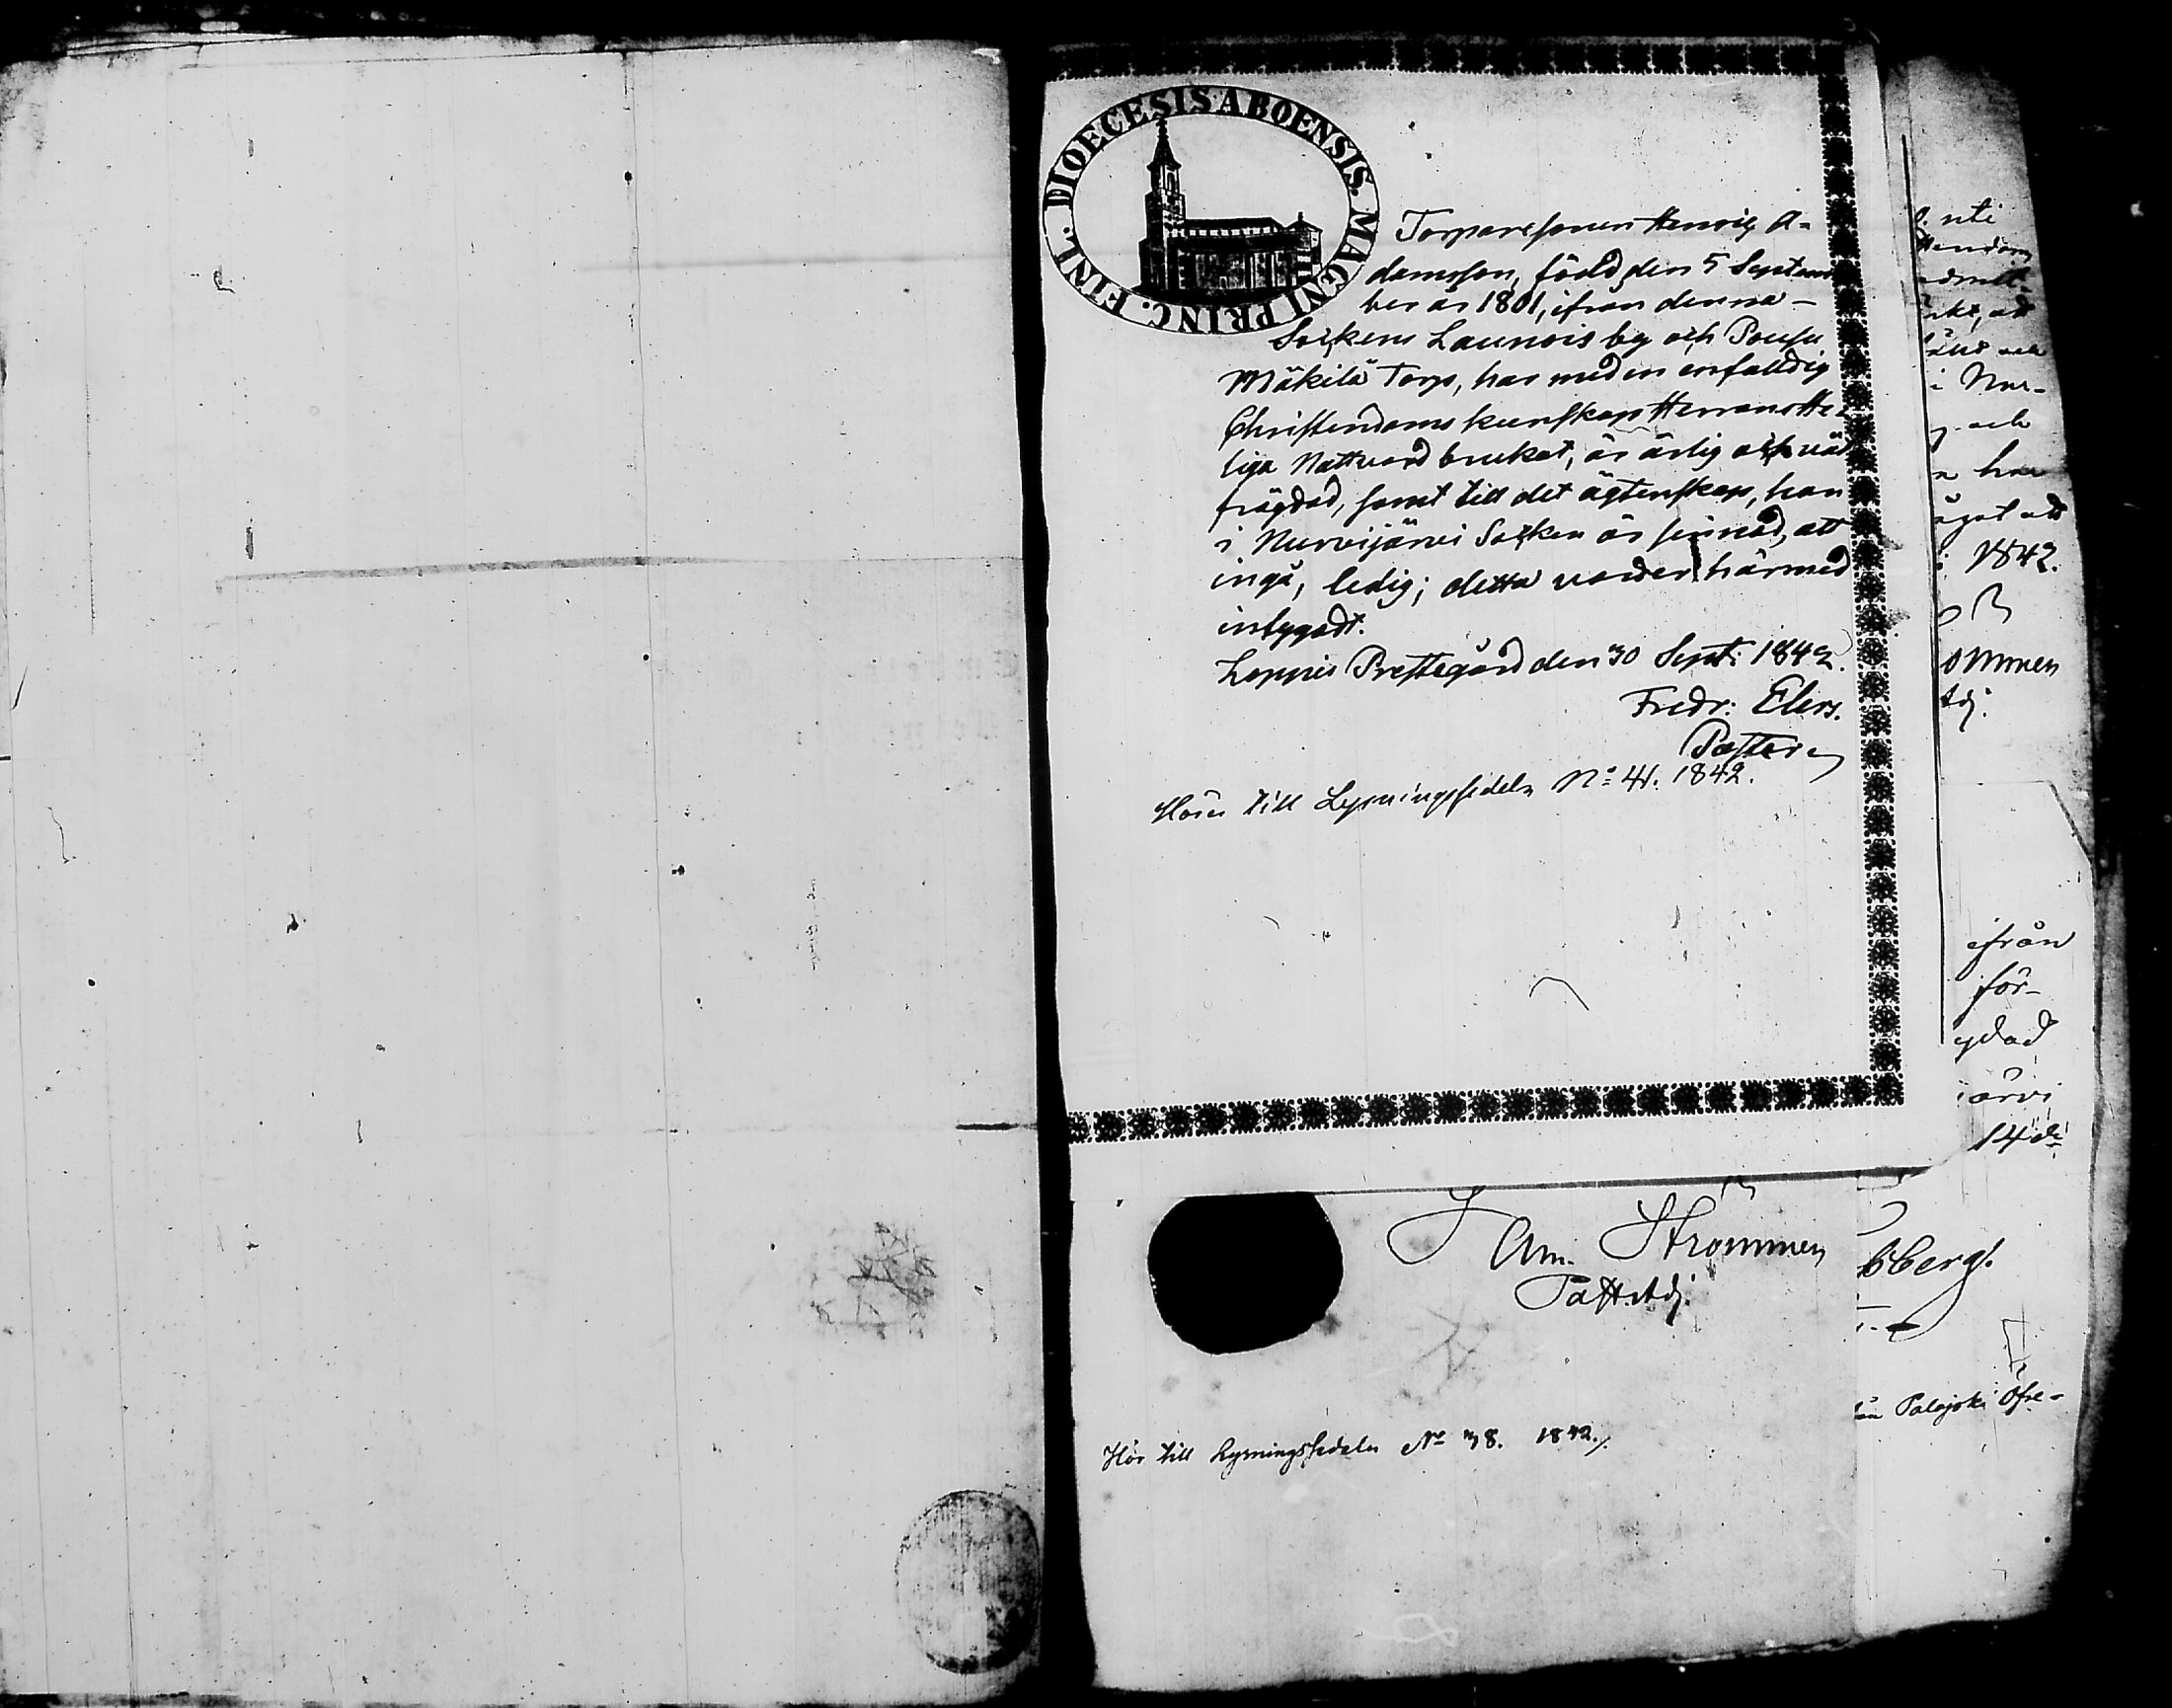 DIOECESIS ABOENSIS. MAGNI PRINC. FINL.
Torparesonen Henrig A-
damsson, född den 5 Septem
ber år 1801, ifrån denna-
Sockens Launois by och Pousu
Mäkilä Torp, har med en enfalldig
Christendoms kunskap Herrans He-
liga Nattvard brukat, är ärlig och väl
frägdad, samt till det ägtenskap, han
i Nurmijärvi Socken är sinnad, att
ingå, ledig; detta varder härmed
intygadt.
Loppis Prestegård den 30 Sept: 1842.
Fredr: Elers.
Pastor
Hörer till Lysningssedeln No 41. 1842.
Am. Strömmen
Past. Adj.
Hör till Lysningssedeln No 38. 1842./.
uti
och
i Nur-
och
har
: 1842.
ommen
Adj.
ifrån
för-
gdad
järvi
14de
bberg.
Palojoki Öfre-